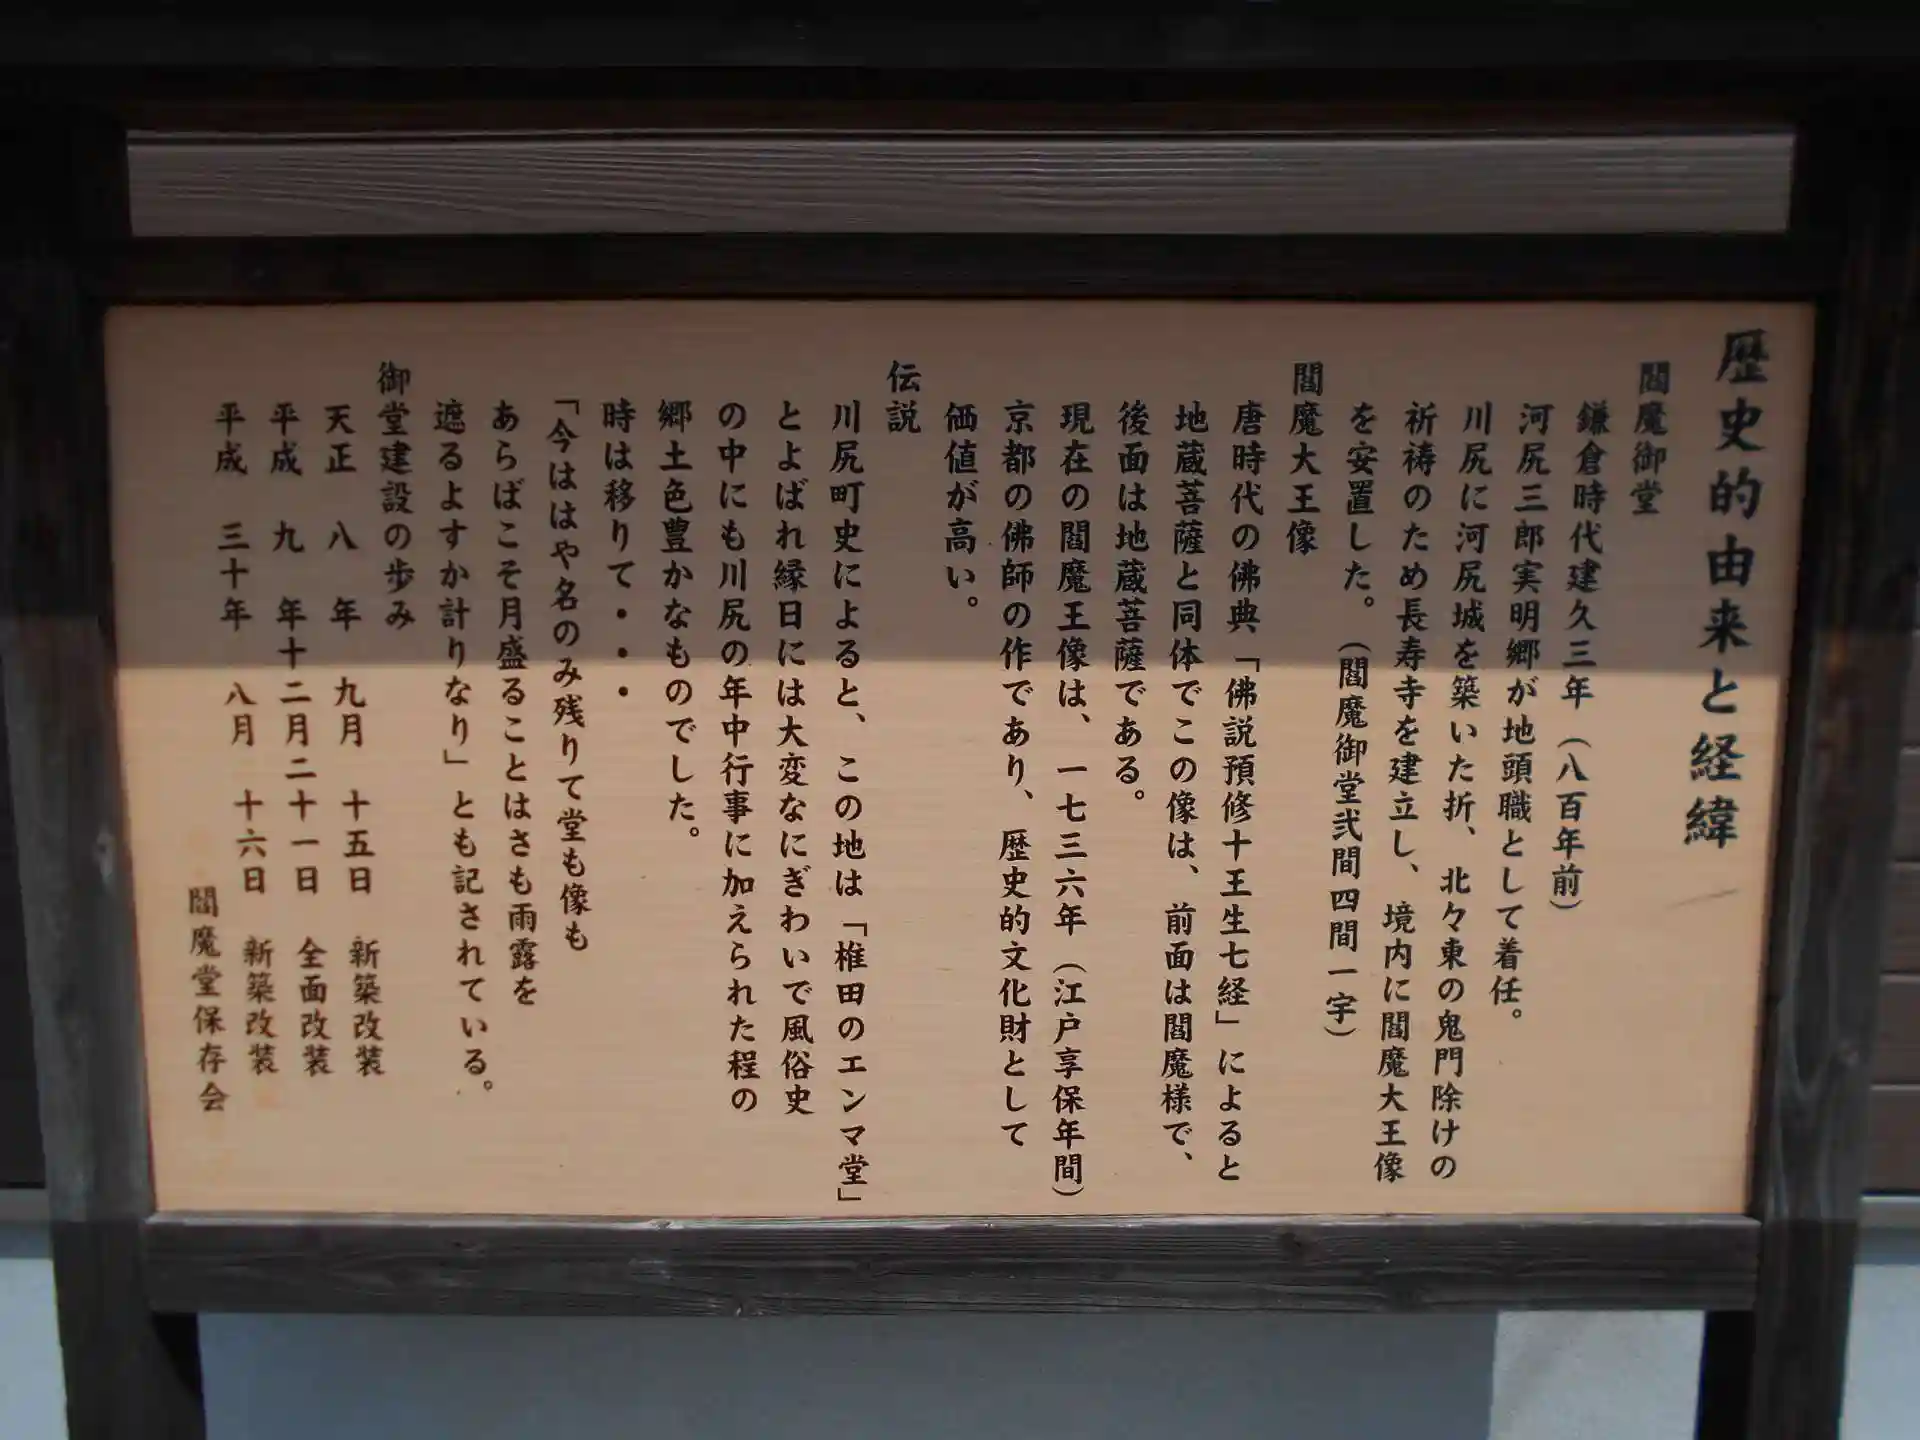 歴史的由来と経緯
閻魔御堂
鎌倉時代建久三年（八百年前）
河尻三郎実明郷が地頭職として着任。
川尻に河尻城を築いた折、北々東の鬼門除けの
祈祷のため長寿寺を建立し、境内に閻魔大王像
を安置した。（閻魔御堂弐間四間一宇）
閻魔大王像
唐時代の佛典「佛説預修十王生七経」によると
地蔵菩薩と同体でこの像は、前面は閻魔様で、
後面は地蔵菩薩である。
現在の閻魔王像は、一七三六年（江戸享保年間）
京都の佛師の作であり、歴史的文化財として
価値が高い。
伝説
川尻町史によると、この地は「椎田のエンマ堂」
とよばれ縁日には大変なにぎわいで風俗史
の中にも川尻の年中行事に加えられた程の
郷土色豊かなものでした。
時は移りて・・・
「今ははや名のみ残りて堂も像も
あらばこそ月盛ることはさも雨露を
遮るよすか計りなり」とも記されている。
御堂建設の歩み
天正 八 年 九月 十五日 新築改装
平成 九 年十二月二十一日 全面改装
平成 三十年 八月 十六日 新築改装
閻魔堂保存会